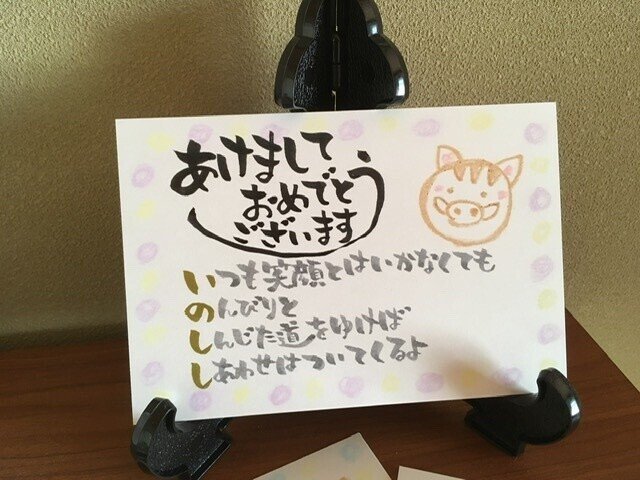 あけまして
おめでとう
ございます
いつも笑顔とはいかなくても
のんびりと
しんじた道をゆけば
しあわせはついてくるよ